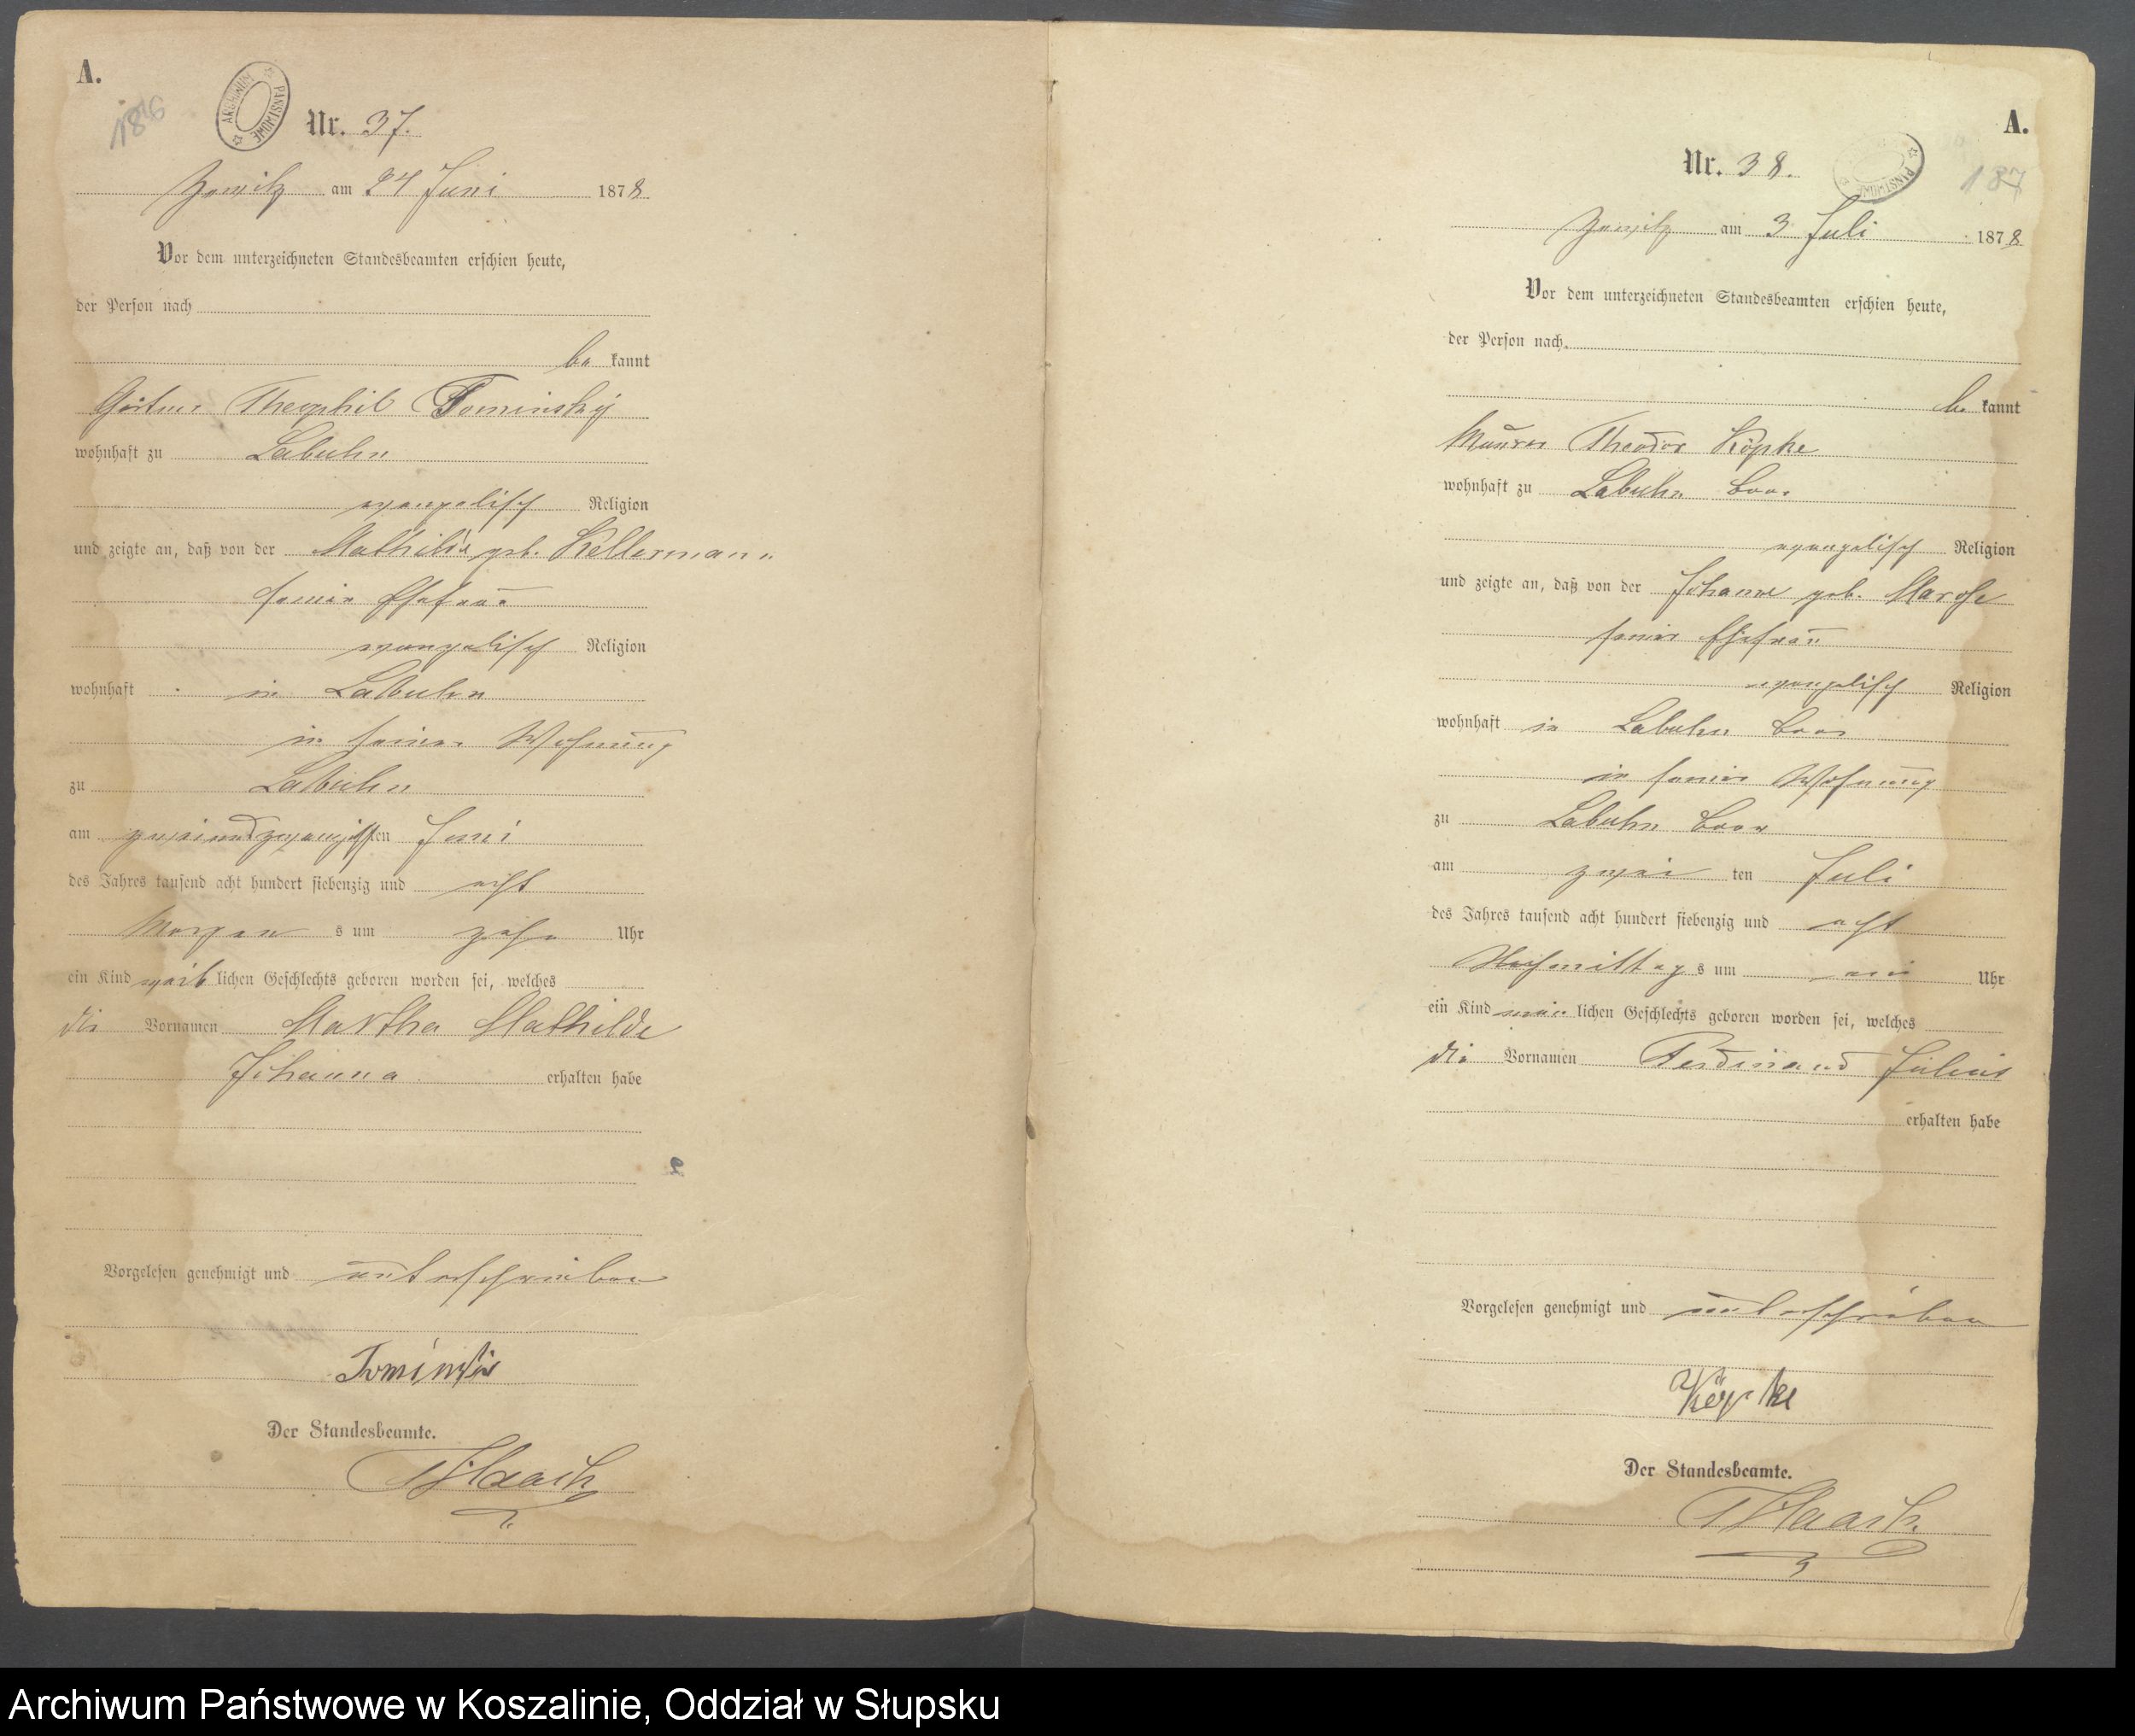 A.
186
ARCHIWUM PAŃSTWOWE
Nr. 37.
Zewitz am 24 Juni 1878
Vor dem unterzeichneten Standesbeamten erschien heute,
der Person nach
be kannt
Gärtner Theophil Tominsky
wohnhaft zu Labuhn
evangelisch Religion
und zeigte an, daß von der Mathilde geb. Kellermann
seiner Ehefrau
evangelisch Religion
wohnhaft in Labuhn
in seiner Wohnung
zu Labuhn
am zweiundzwanzigsten Juni
des Jahres tausend acht hundert siebenzig und acht
Morgen s um zehn Uhr
ein Kind weib lichen Geschlechts geboren worden sei, welches
die Vornamen Martha Mathilde
Johanna erhalten habe
Vorgelesen genehmigt und unterschrieben
Tominski
Der Standesbeamte.
Haach
A.
187
PAŃSTWOWE
Nr. 38.
Zewitz am 3 Juli 1878
Vor dem unterzeichneten Standesbeamten erschien heute,
der Person nach
be kannt
Maurer Theodor Köpke
wohnhaft zu Labuhn
evangelisch Religion
und zeigte an, daß von der Johanne geb.
seiner Ehefrau
evangelisch Religion
wohnhaft in Labuhn
in seiner Wohnung
zu Labuhn
am zwei ten Juli
des Jahres tausend acht hundert siebenzig und acht
Nachmittag s um Uhr
ein Kind män lichen Geschlechts geboren worden sei, welches
die Vornamen Ferdinand Julius
erhalten habe
Vorgelesen genehmigt und unterschrieben
Köpke
Der Standesbeamte.
Haach
Archiwum Państwowe w Koszalinie, Oddział w Słupsku